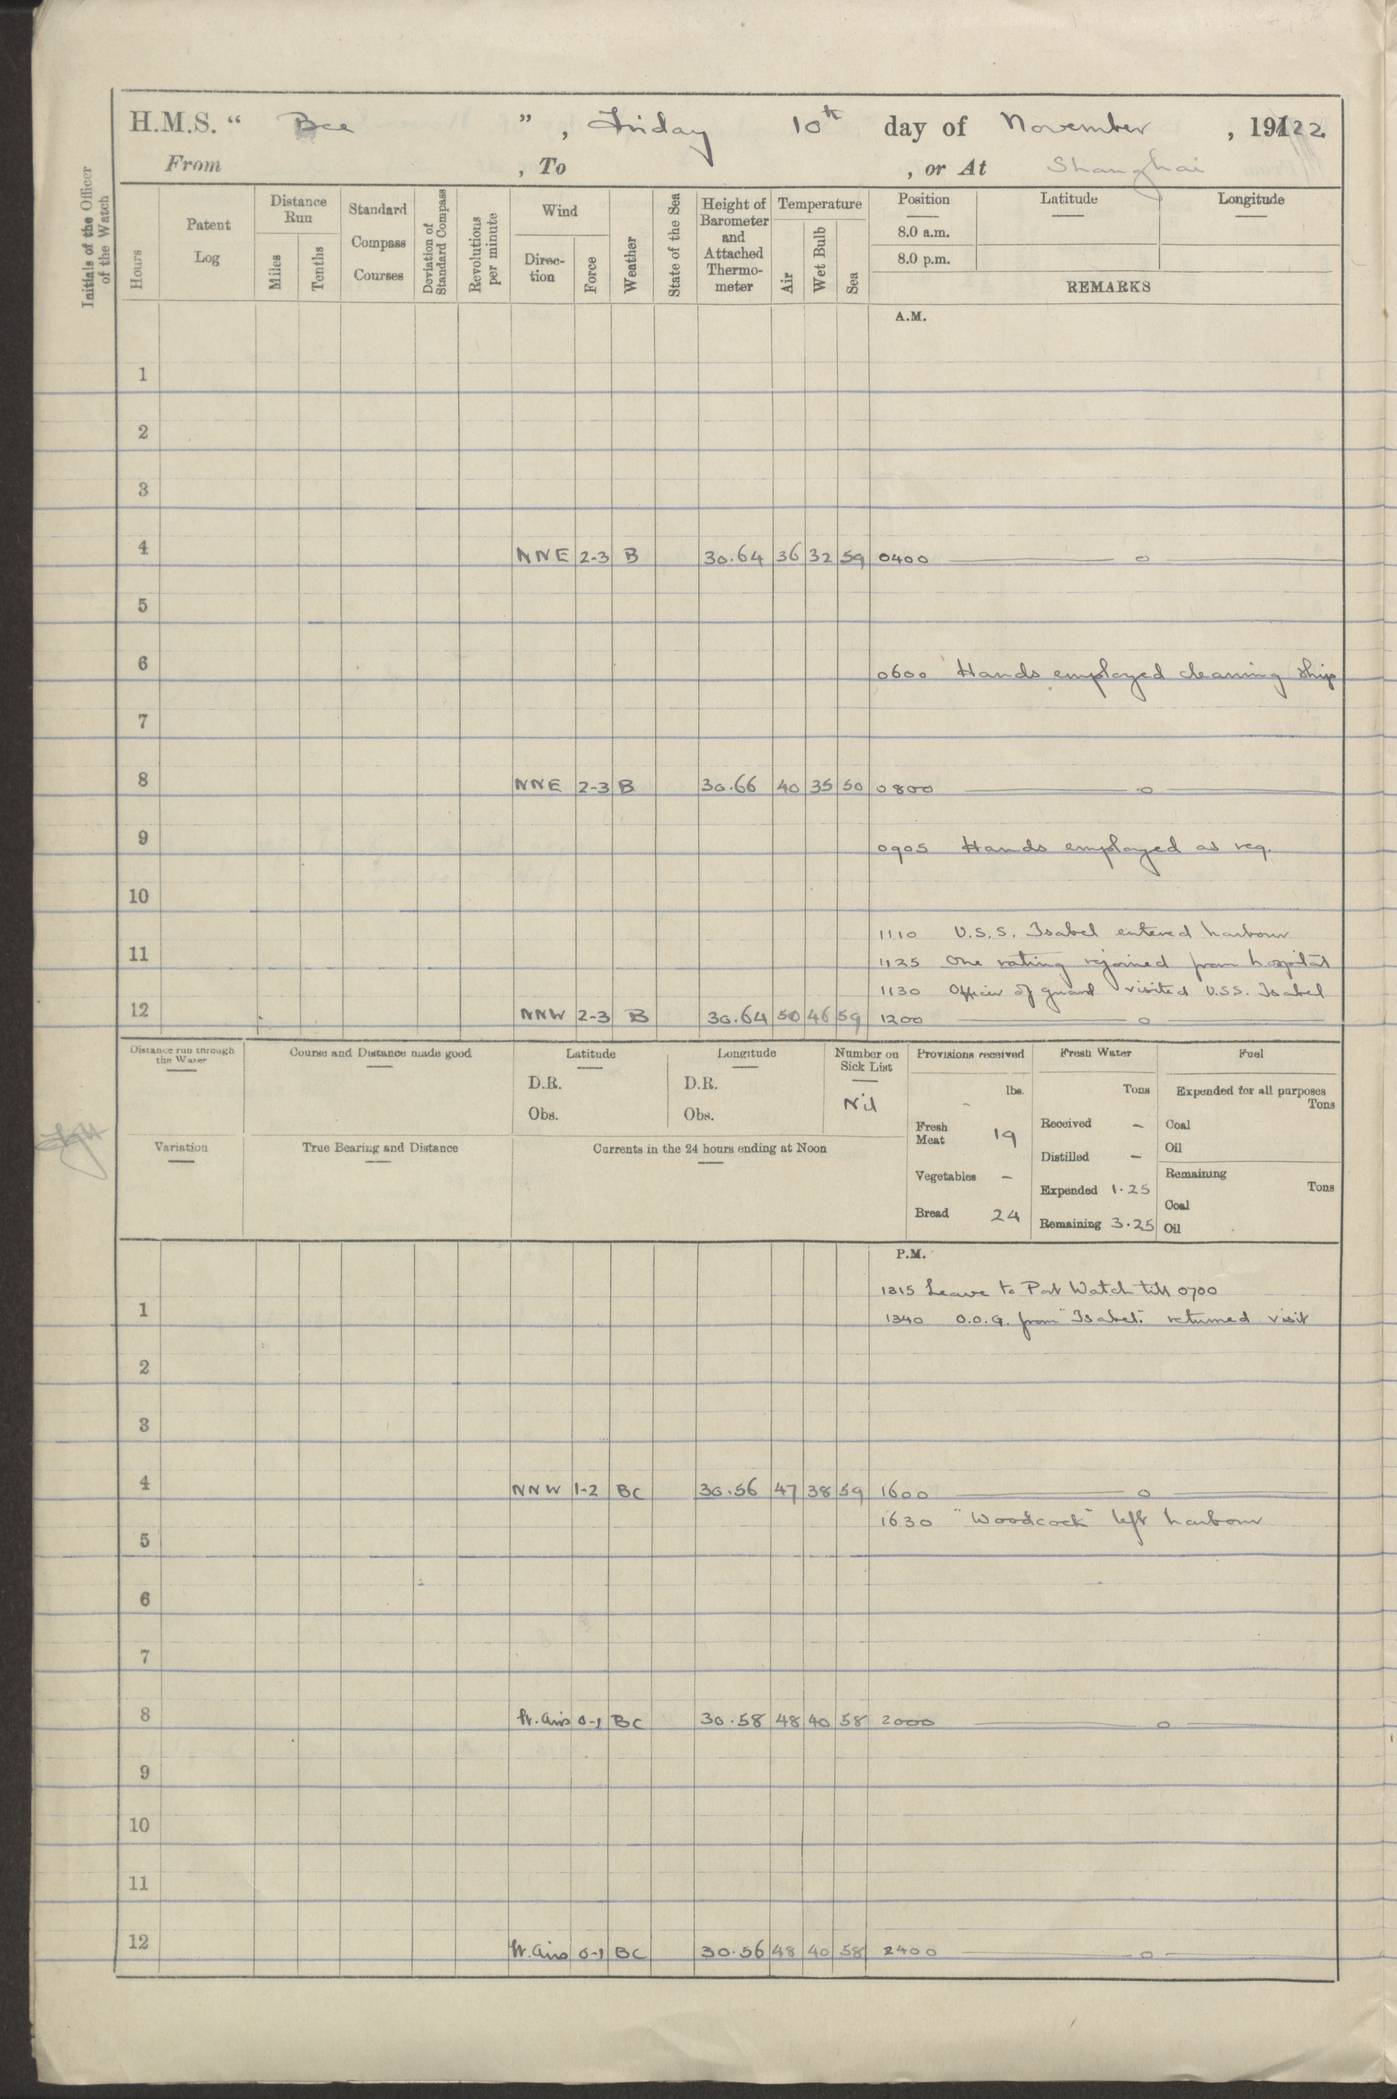 H.M.S. “ Bee ” , Friday 10th day of November , 1922.
From , To , or At Shanghai
Initials of the Officer of the Watch
Hours
Patent Log
Distance Run
Miles
Tenths
Standard Compass Courses
Deviation of Standard Compass
Revolutions per minute
Wind
Direc-tion
Force
Weather
State of the Sea
Height of Barometer and Attached Thermo-meter
Temperature
Air
Wet Bulb
Sea
Position Latitude Longitude
8.0 a.m.
8.0 p.m.
REMARKS
A.M.
1
2
3
4 NNE 2-3 B 30.64 36 32 59 0400 —— o ——
5
6 0600 Hands employed cleaning ship
7
8 NNE 2-3 B 30.66 40 35 50 0800 —— o ——
9 0905 Hands employed as req.
10
1110 U.S.S. Isabel entered harbour
11 1125 One rating rejoined from hospital
1130 Officer of guard visited U.S.S. Isabel
12 NNW 2-3 B 30.64 50 46 59 1200 —— o ——
Distance run through the Water
Course and Distance made good
Latitude
D.R.
Obs.
Longitude
D.R.
Obs.
Number on Sick List
Nil
Provisions received
lbs.
-
Fresh Meat 19
Vegetables -
Bread 24
Fresh Water
Tons
Received -
Distilled -
Expended 1.25
Remaining 3.25
Fuel
Expended for all purposes
Tons
Coal
Oil
Remaining
Tons
Coal
Oil
Variation
True Bearing and Distance
Currents in the 24 hours ending at Noon
P.M.
1315 Leave to Port Watch till 0700
1 1340 O.O.G. from "Isabel." returned visit
2
3
4 NNW 1-2 BC 30.56 47 38 59 1600 —— o ——
1630 "Woodcock" left harbour
5
6
7
8 lt. airs 0-1 BC 30.58 48 40 58 2000 —— o ——
9
10
11
12 lt. airs 0-1 BC 30.56 48 40 58 2400 —— o ——